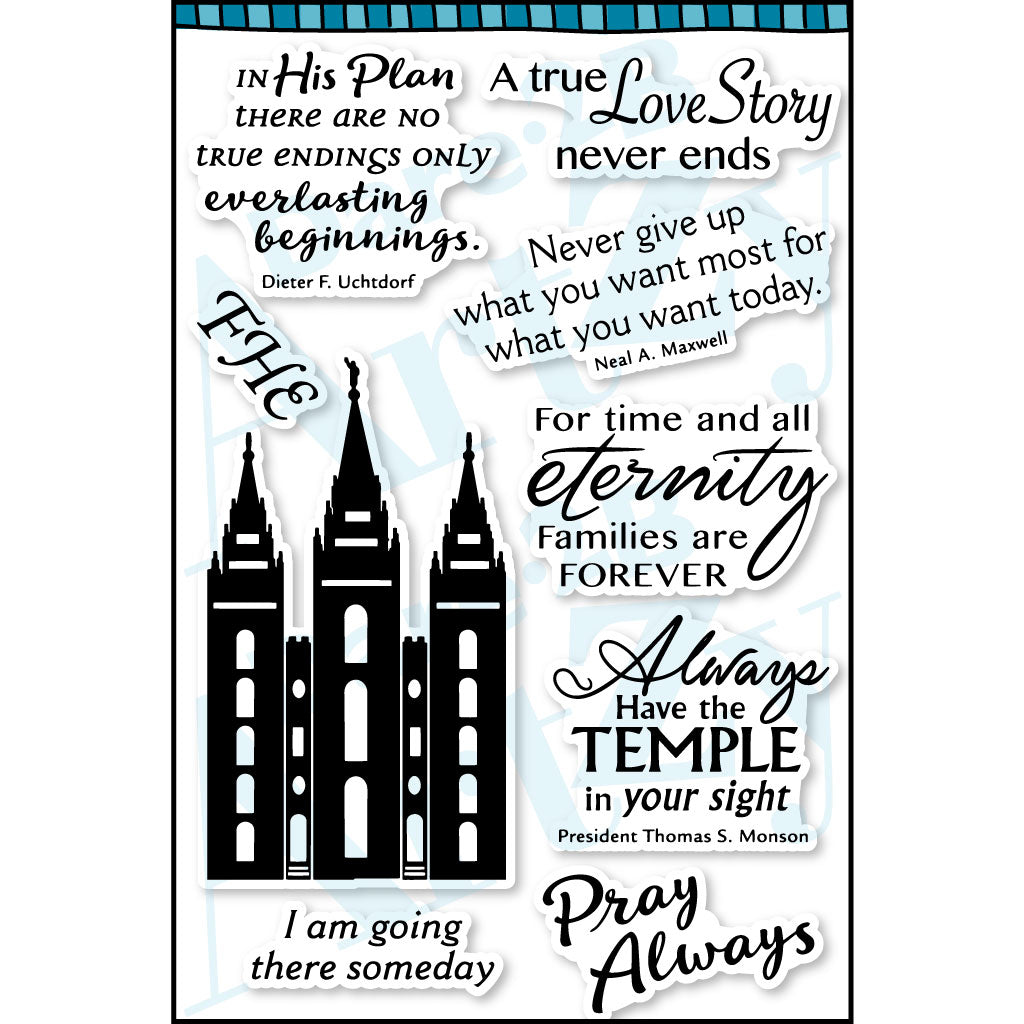 IN His Plan
THERE ARE NO
TRUE ENDINGS ONLY
everlasting
beginnings.
Dieter F. Uchtdorf
A true Love Story
never ends
Never give up
what you want most for
what you want today.
Neal A. Maxwell
FHE
For time and all
eternity
Families are
FOREVER
Always
Have the
TEMPLE
in your sight
President Thomas S. Monson
I am going
there someday
Pray
Always